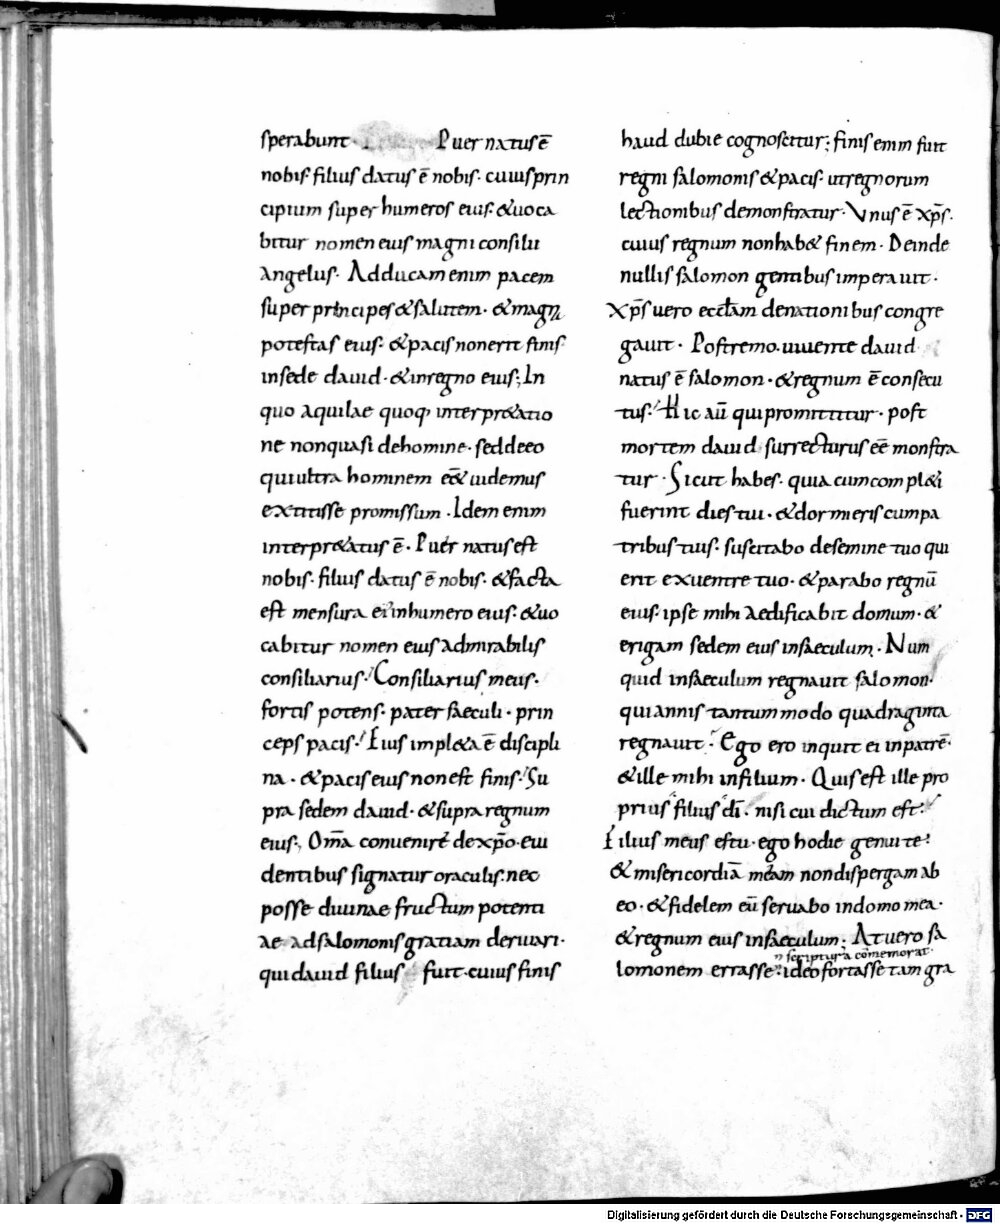 sperabunt· Puer natus ē
nobis filius datus ē nobis· cuius prin
cipium super humeros eius· & uoca
bitur nomen eius magni consilii
angelus· Adducam enim pacem
super principes & salutem· & magna
potestas eius· & pacis non erit finis
in sede dauid· & in regno eius; In
quo aquilae quoq; interpr&atio
ne non quasi de homine· sed de eo
qui ultra hominem e& uidemus
extitisse promissum· Idem enim
interpr&atus ē· Puer natus est
nobis· filius datus ē nobis· & facta
est mensura ei in humero eius· & uo
cabitur nomen eius admirabilis
consiliarius· Consiliarius meus·
fortis potens· pater saeculi· prin
ceps pacis· Eius impl&a ē discipli
na· & pacis eius non est finis· Su
pra sedem dauid· & supra regnum
eius; Om̄a conuenire de xp̄o· eui
dentibus signatur oraculis· nec
posse diuinae fructum potenti
ae ad salomonis gratiam deriuari·
qui dauid filius fuit· cuius finis
haud dubie cognoscitur; finis enim fuit
regni salomonis & pacis· ut regnorum
lectionibus demonstratur· Vnus ē xp̄s·
cuius regnum non hab& finem· Deinde
nullis salomon gentibus imperauit·
xp̄s uero eccl̄am de nationibus congre
gauit· Postremo· uiuente dauid
natus ē salomon· & regnum ē consecu
tus· Hic aū qui promittitur· post
mortem dauid surrecturus eē monstra
tur· Sicut habes· quia cum compl&i
fuerint dies tui· & dormieris cum pa
tribus tuis· suscitabo de semine tuo qui
erit ex uentre tuo· & parabo regnū
eius· ipse mihi aedificabit domum· &
erigam sedem eius in saeculum· Num
quid in saeculum regnauit salomon·
qui annis tantummodo quadraginta
regnauit· Ego ero inquit ei in patrē·
& ille mihi in filium· Quis est ille pro
prius filius dī· nisi cui dictum est·
Filius meus es tu· ego hodie genui te·
& misericordiā meam non dispergam ab
eo· & fidelem eū seruabo in domo mea·
& regnum eius in saeculum; At uero sa
n scriptura cōmemorat·
lomonem errasse· ideo fortasse tam gra
Digitalisierung gefördert durch die Deutsche Forschungsgemeinschaft - DFG